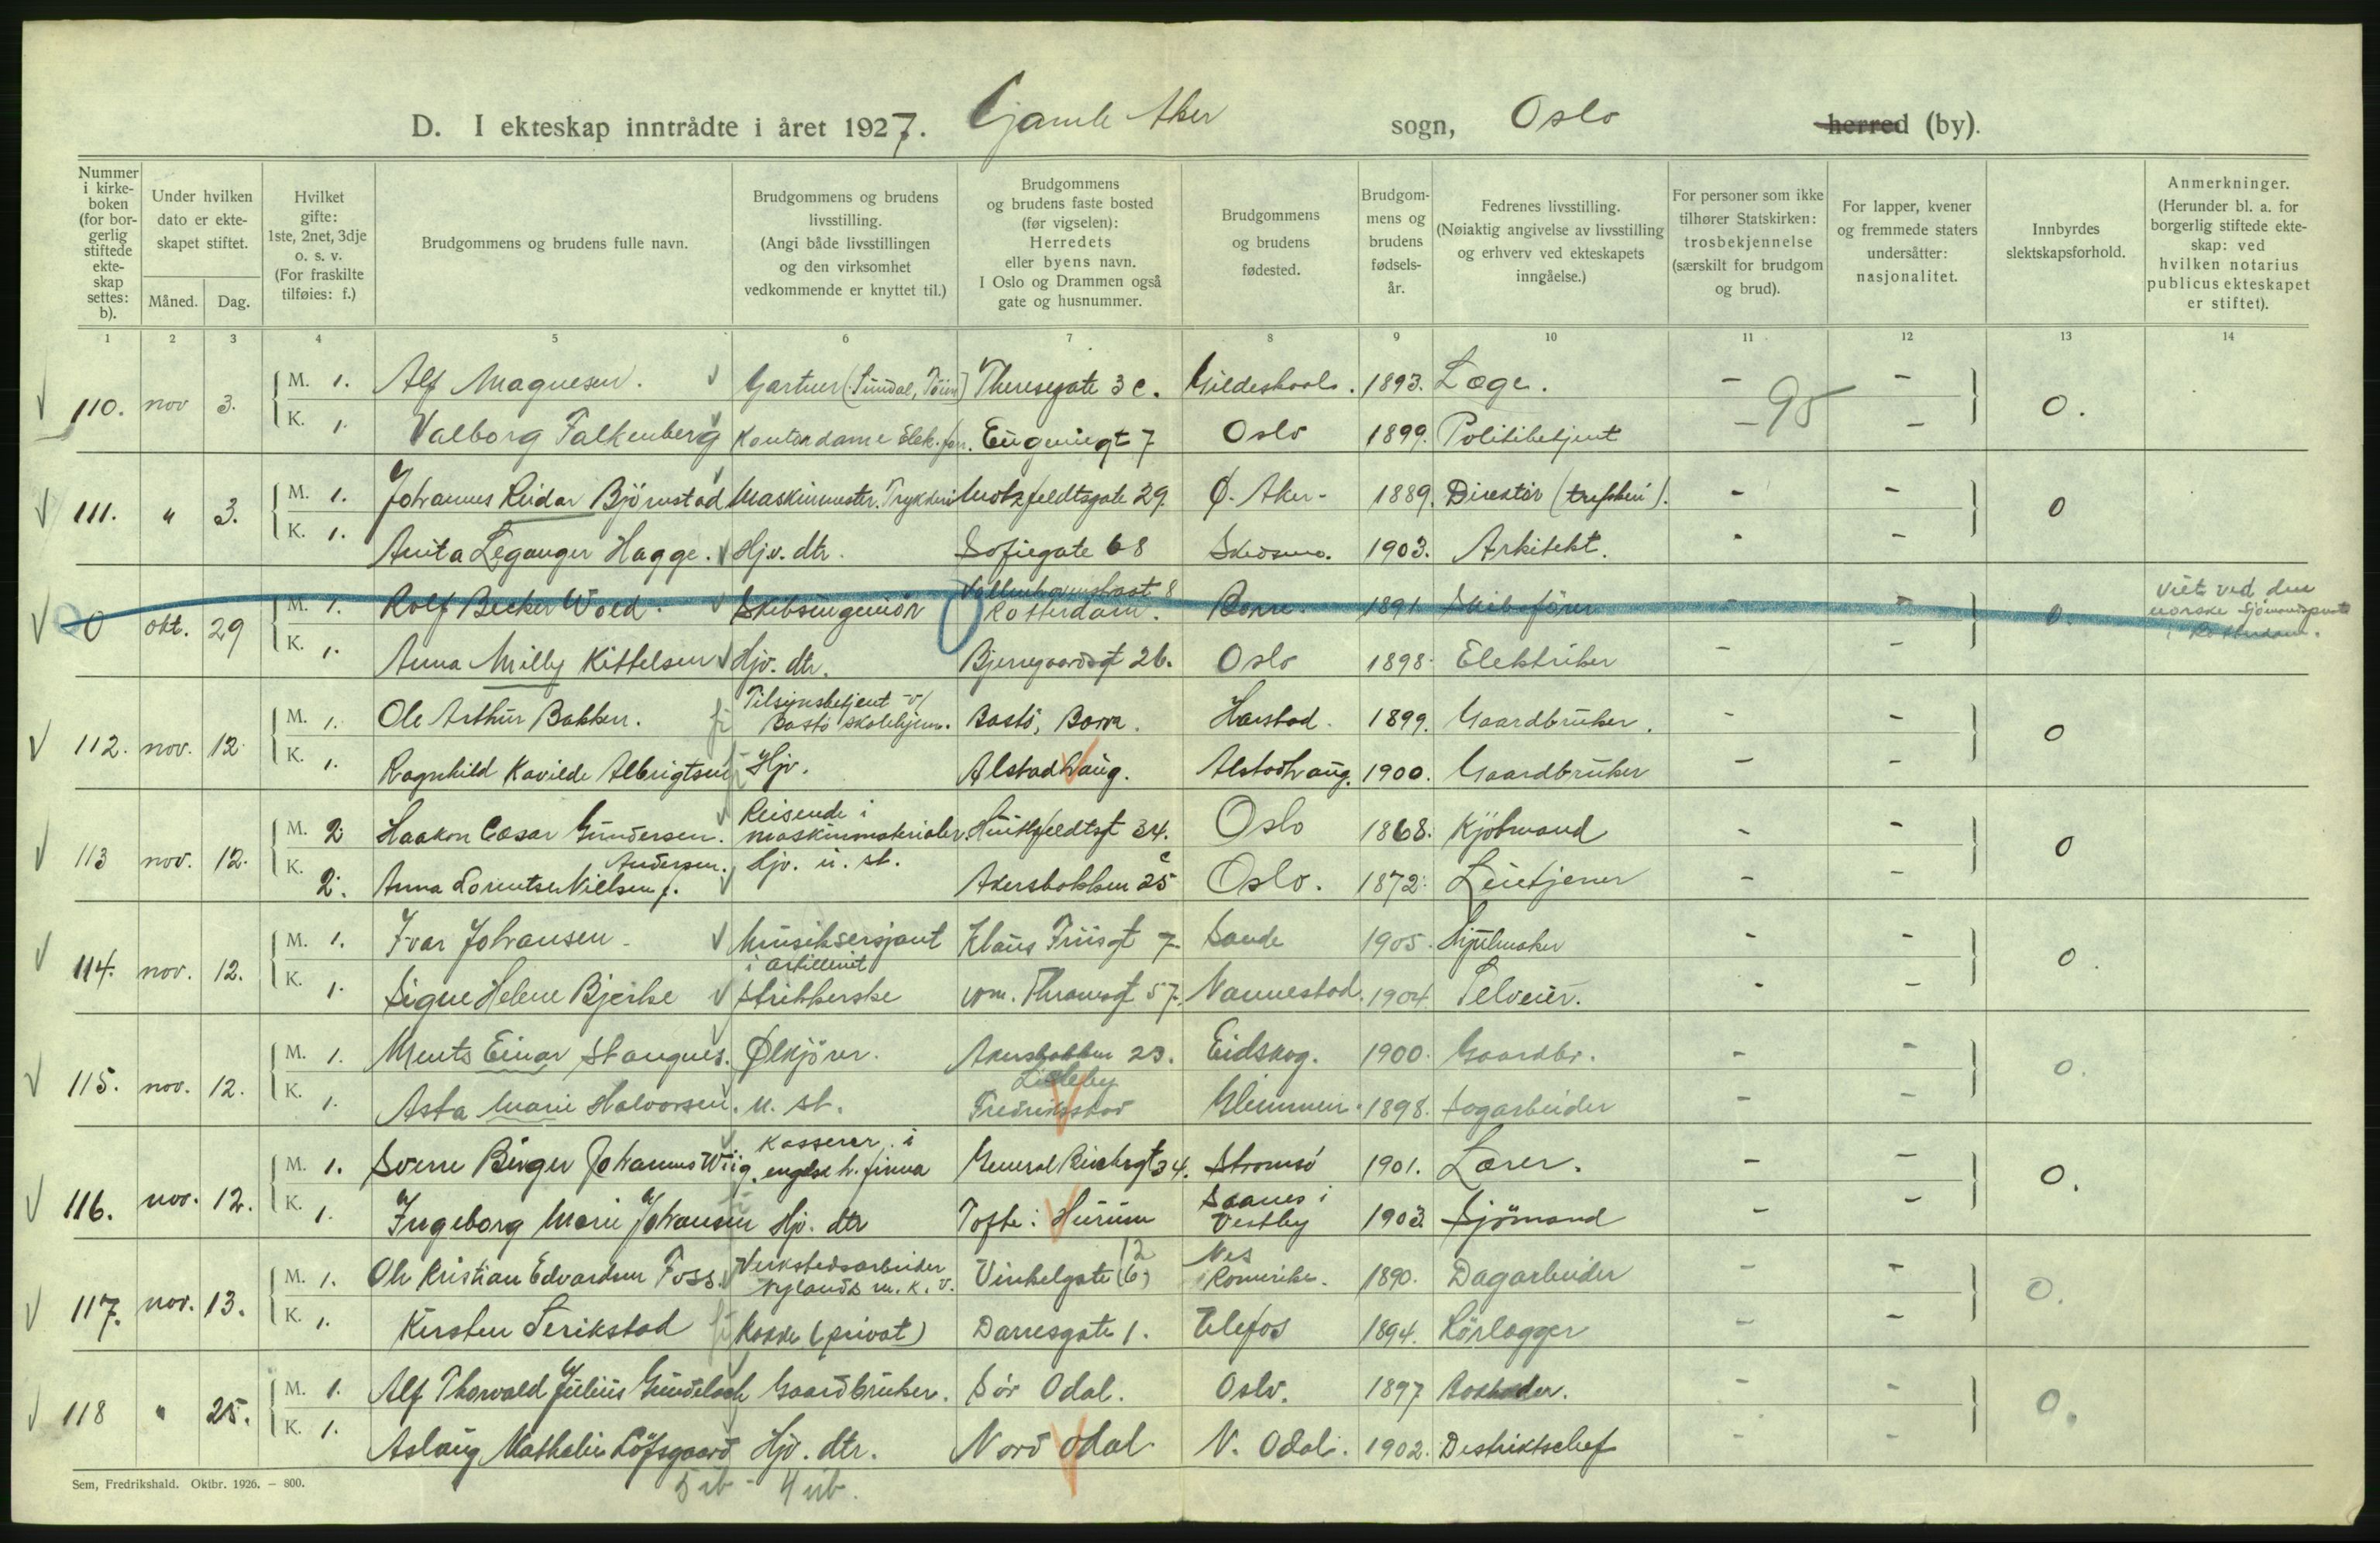 D. I ekteskap inntrådte i året 1927. Gamle Aker sogn, Oslo herred (by).
Nummer i kirkeboken (for borgerlig stiftede ekteskap settes: b).
Under hvilken dato er ekteskapet stiftet.
Måned. Dag.
Hvilket gifte: 1ste, 2net, 3dje o. s. v. (For fraskilte tilføies: f.)
Brudgommens og brudens fulle navn.
Brudgommens og brudens livsstilling. (Angi både livsstillingen og den virksomhet vedkommende er knyttet til.)
Brudgommens og brudens faste bosted (før vigselen): Herredets eller byens navn. I Oslo og Drammen også gate og husnummer.
Brudgommens og brudens fødested.
Brudgommens og brudens fødselsår.
Fedrenes livsstilling. (Nøiaktig angivelse av livsstilling og erhverv ved ekteskapets inngåelse.)
For personer som ikke tilhører Statskirken: trosbekjennelse (særskilt for brudgom og brud).
For lapper, kvener og fremmede staters undersåtter: nasjonalitet.
Innbyrdes slektskapsforhold.
Anmerkninger. (Herunder bl. a. for borgerlig stiftede ekteskap: ved hvilken notarius publicus ekteskapet er stiftet).
1 2 3 4 5 6 7 8 9 10 11 12 13 14
110. nov 3. M. 1. Alf Magnesen. Gartner (Sundal, Töien) Theresegate 3 c. Gildeskaal. 1893. Læge. - - 0.
K. 1. Valborg Falkenberg Kontordame Elek. forr. Eugeniegt 7 Oslo 1899. Politibetjent - 95 -
111. " 3. M. 1. Johannes Reidar Björnstad Maskinmester. Trykkeri Motzfeldtsgate 29. Ø. Aker - 1889. Direktör - - 0
K. 1. Anita Leganger Hagge. Hjv. dtr. Sofiegate 68 Skedsmo. 1903. Arkitekt. - -
0 okt. 29 M. 1. Rolf Becker Wold. Skibsingeniör Rotterdam. Borre. 1891 Skibsförer - - 0. Viet ved den norske Sjömandsprest i Rotterdam.
K. 1. Anna Milly Kittelsen Hjv. dtr. Bjerregaardsgt 26. Oslo 1898. Elektriker - -
112. nov. 12. M. 1. Ole Arthur Bakken. Tilsynsbetjent v/ Bastö skolehjem. Bastö, Borre. Harstad. 1899. Gaardbruker. - - 0
K. 1. Ragnhild Kavilde Albrigtsen Hjv. Alstadhaug. Alstadhaug. 1900. Gaardbruker - -
113 nov. 12. M. 2 Haakon Cæsar Gundersen. Reisende i maskinmaterialer. Huitfeldtsgt 34. Oslo 1868. Kjöbmand - - 0
K. 2. Anna Lorentse Nielsen f. Andersen. Hjv. u. st. Akersbakken 25 c Oslo. 1872. Leietjener - -
114. nov. 12. M. 1. Ivar Johansen Musiksersjant i artilleriet Klaus Friisgt 7 Sande 1905. Hjulmaker - - 0.
K. 1. Signe Helene Bjerke Strikkerske Thranesgt 57. Nannestad. 1904. - -
115. nov. 12. M. 1. Ments Einar Stangnes. Ølkjörer. Akersbakken 23. Eidskog. 1900. Gaardbr. - - 0.
K. 1. Asta Marie Halvorsen. u. st. Lisleby Fredriksstad Glemmen. 1898. Sagarbeider - -
116. nov. 12. M. 1. Sverre Birger Johannes Wiig. Kasserer i engelsk h. firma General Birchsgt 34. Strömsö 1901. Lærer. - - 0.
K. 1. Ingeborg Marie Johansen Hjv. dtr Tofte i Hurum Saanes i Vestby 1903. Sjömand - -
117. nov. 13. M. 1. Ole Kristian Edvardsen Foss. Verkstedsarbeider Nylands m. k. v. Vinkelgate (6) 12 Nes Romerike. 1890. Dagarbeider - - 0.
K. 1. Kirsten Serikstad Kokke (privat) Darresgate 1. Ulefos 1894. Rörlægger - -
118 " 25. M. 1. Alf Thorvald Julius Gundelach Gaardbruker. Sör Odal. Oslo. 1897 - - 0.
K. 1. Aslaug Mathalie Löfsgaard Hjv. dtr. Nord Odal N. Odal. 1902. Destriktschef - -
Sem, Fredrikshald. Oktbr. 1926. — 800.
5 ib - 4 ub.